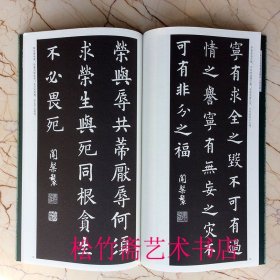 寧有求全之毀不可有過
情之譽寧有無妄之災不
可有非分之福
榮與辱共蒂厭辱何須
求榮生與死同根貪生
不必畏死
松竹斋艺术书店